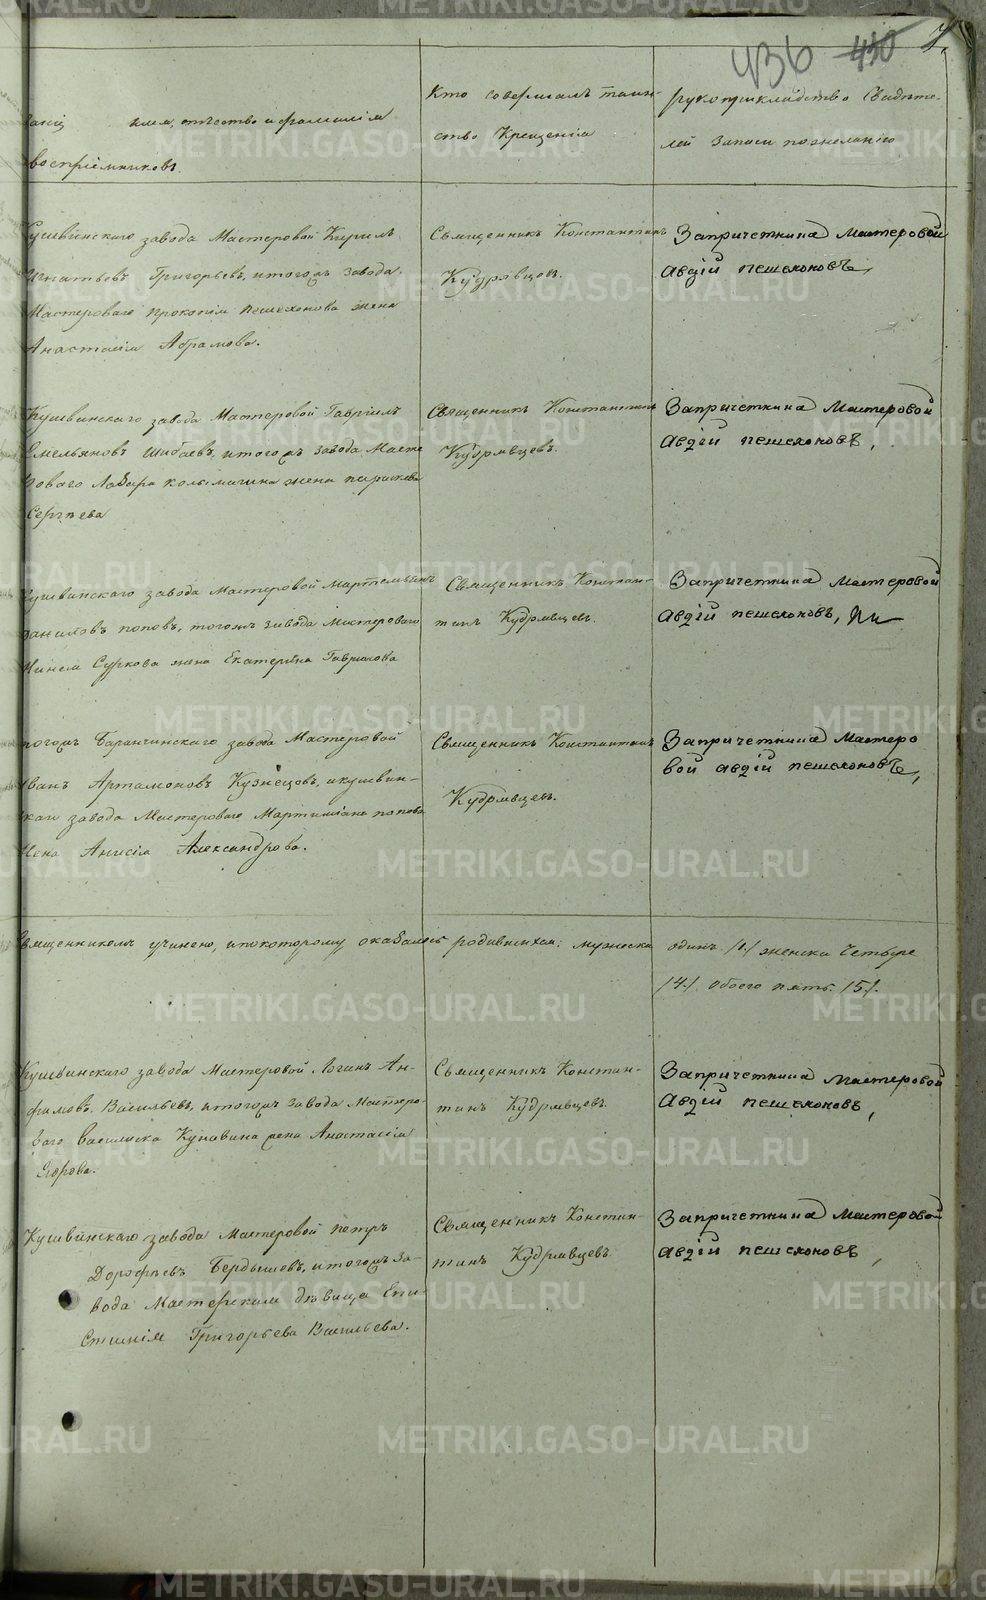 436 430 7.
Званіе, имя, отчество и фамилія
воспріемниковъ.
Кто совершалъ таин-
ство Крещенія
рукоприкладство Свидѣте-
лей записи по желанію
Кушвинскаго завода Мастеровой Кирилъ
Игнатьевъ Григорьевъ, и того жъ завода
Мастероваго Прокопія Пешехонова жена
Анастасія Абрамова.
Священникъ Константинъ
Кудрявцевъ.
Запричетнина Мастеровой
Авдій пешехоновъ,
Кушвинскаго завода Мастеровой Гавріилъ
Емельяновъ Шибаевъ, и того жъ завода Масте
роваго Лазара Колымагина жена параскева
Сергѣева
Священникъ Константинъ
Кудрявцевъ.
Запричеткина Мастеровой
Авдій пешехоновъ,
Кушвинскаго завода Мастеровой Мартемьянъ
Даниловъ поповъ, того жъ завода Мастероваго
Суркова жена Екатерина Гаврилова
Священникъ Констан-
тинъ Кудрявцевъ.
Запричеткина Мастеровой
Авдій пешехоновъ,
того жъ Баранчинскаго завода Мастеровой
Иванъ Артамоновъ Кузнецовъ, и кушвин-
скаго завода Мастероваго Мартиміана попова
жена Анисія Александрова.
Священникъ Константинъ
Кудрявцевъ.
Запричетнина Мастеро
вой авдій пешехоновъ,
Священникомъ учинено, и по которому оказалось родившихся: мужеска одинъ /1./ женска Четыре
/4./ обоего пять. /5/.
Кушвинскаго завода Мастеровой Логинъ Ан-
фимовъ Васильевъ, и того жъ завода Мастеро-
ваго Василиска Кунавина жена Анастасія
Егорова.
Священникъ Констан-
тинъ Кудрявцевъ.
Запричетнина Мастеровой
Авдій пешехоновъ,
Кушвинскаго завода Мастеровой петръ
Дорофѣевъ Бердышевъ, и того жъ за-
вода Мастерская дѣвица Епи-
стимія Григорьева Васильева.
Священникъ Констан-
тинъ Кудрявцевъ
Запричетнина Мастеровой
авдій пешехоновъ,
METRIKI.GASO-URAL.RU